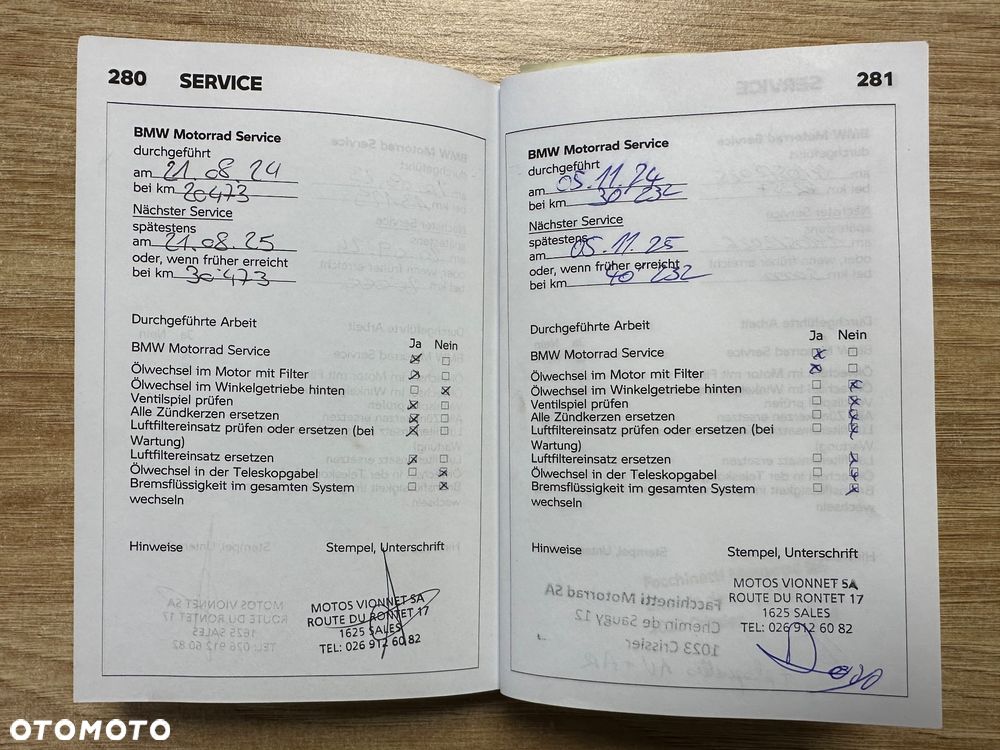 280 SERVICE
BMW Motorrad Service
durchgeführt
am 21.08.24
bei km 20473
Nächster Service
spätestens
am 21.08.25
oder, wenn früher erreicht
bei km 30'473
Durchgeführte Arbeit
Ja Nein
BMW Motorrad Service
Ölwechsel im Motor mit Filter
Ölwechsel im Winkelgetriebe hinten
Ventilspiel prüfen
Alle Zündkerzen ersetzen
Luftfiltereinsatz prüfen oder ersetzen (bei
Wartung)
Luftfiltereinsatz ersetzen
Ölwechsel in der Teleskopgabel
Bremsflüssigkeit im gesamten System
wechseln
Hinweise Stempel, Unterschrift
MOTOS VIONNET SA
ROUTE DU RONTET 17
1625 SALES
TEL: 026 912 60 82
281
BMW Motorrad Service
durchgeführt
am 05.11.24
bei km 30'232
Nächster Service
spätestens
am 05.11.25
oder, wenn früher erreicht
bei km 40'232
Durchgeführte Arbeit
Ja Nein
BMW Motorrad Service
Ölwechsel im Motor mit Filter
Ölwechsel im Winkelgetriebe hinten
Ventilspiel prüfen
Alle Zündkerzen ersetzen
Luftfiltereinsatz prüfen oder ersetzen (bei
Wartung)
Luftfiltereinsatz ersetzen
Ölwechsel in der Teleskopgabel
Bremsflüssigkeit im gesamten System
wechseln
Hinweise Stempel, Unterschrift
MOTOS VIONNET SA
ROUTE DU RONTET 17
1625 SALES
TEL: 026 912 60 82
OTOMOTO